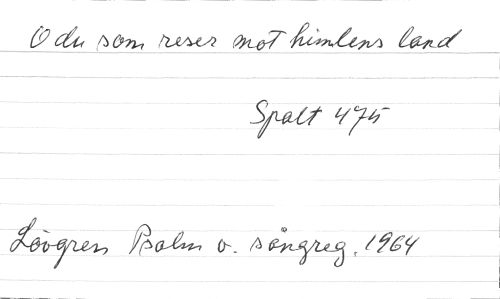 O du som reser mot himlens land
Spalt 475
Lövgren Psalm o. sångreg. 1964